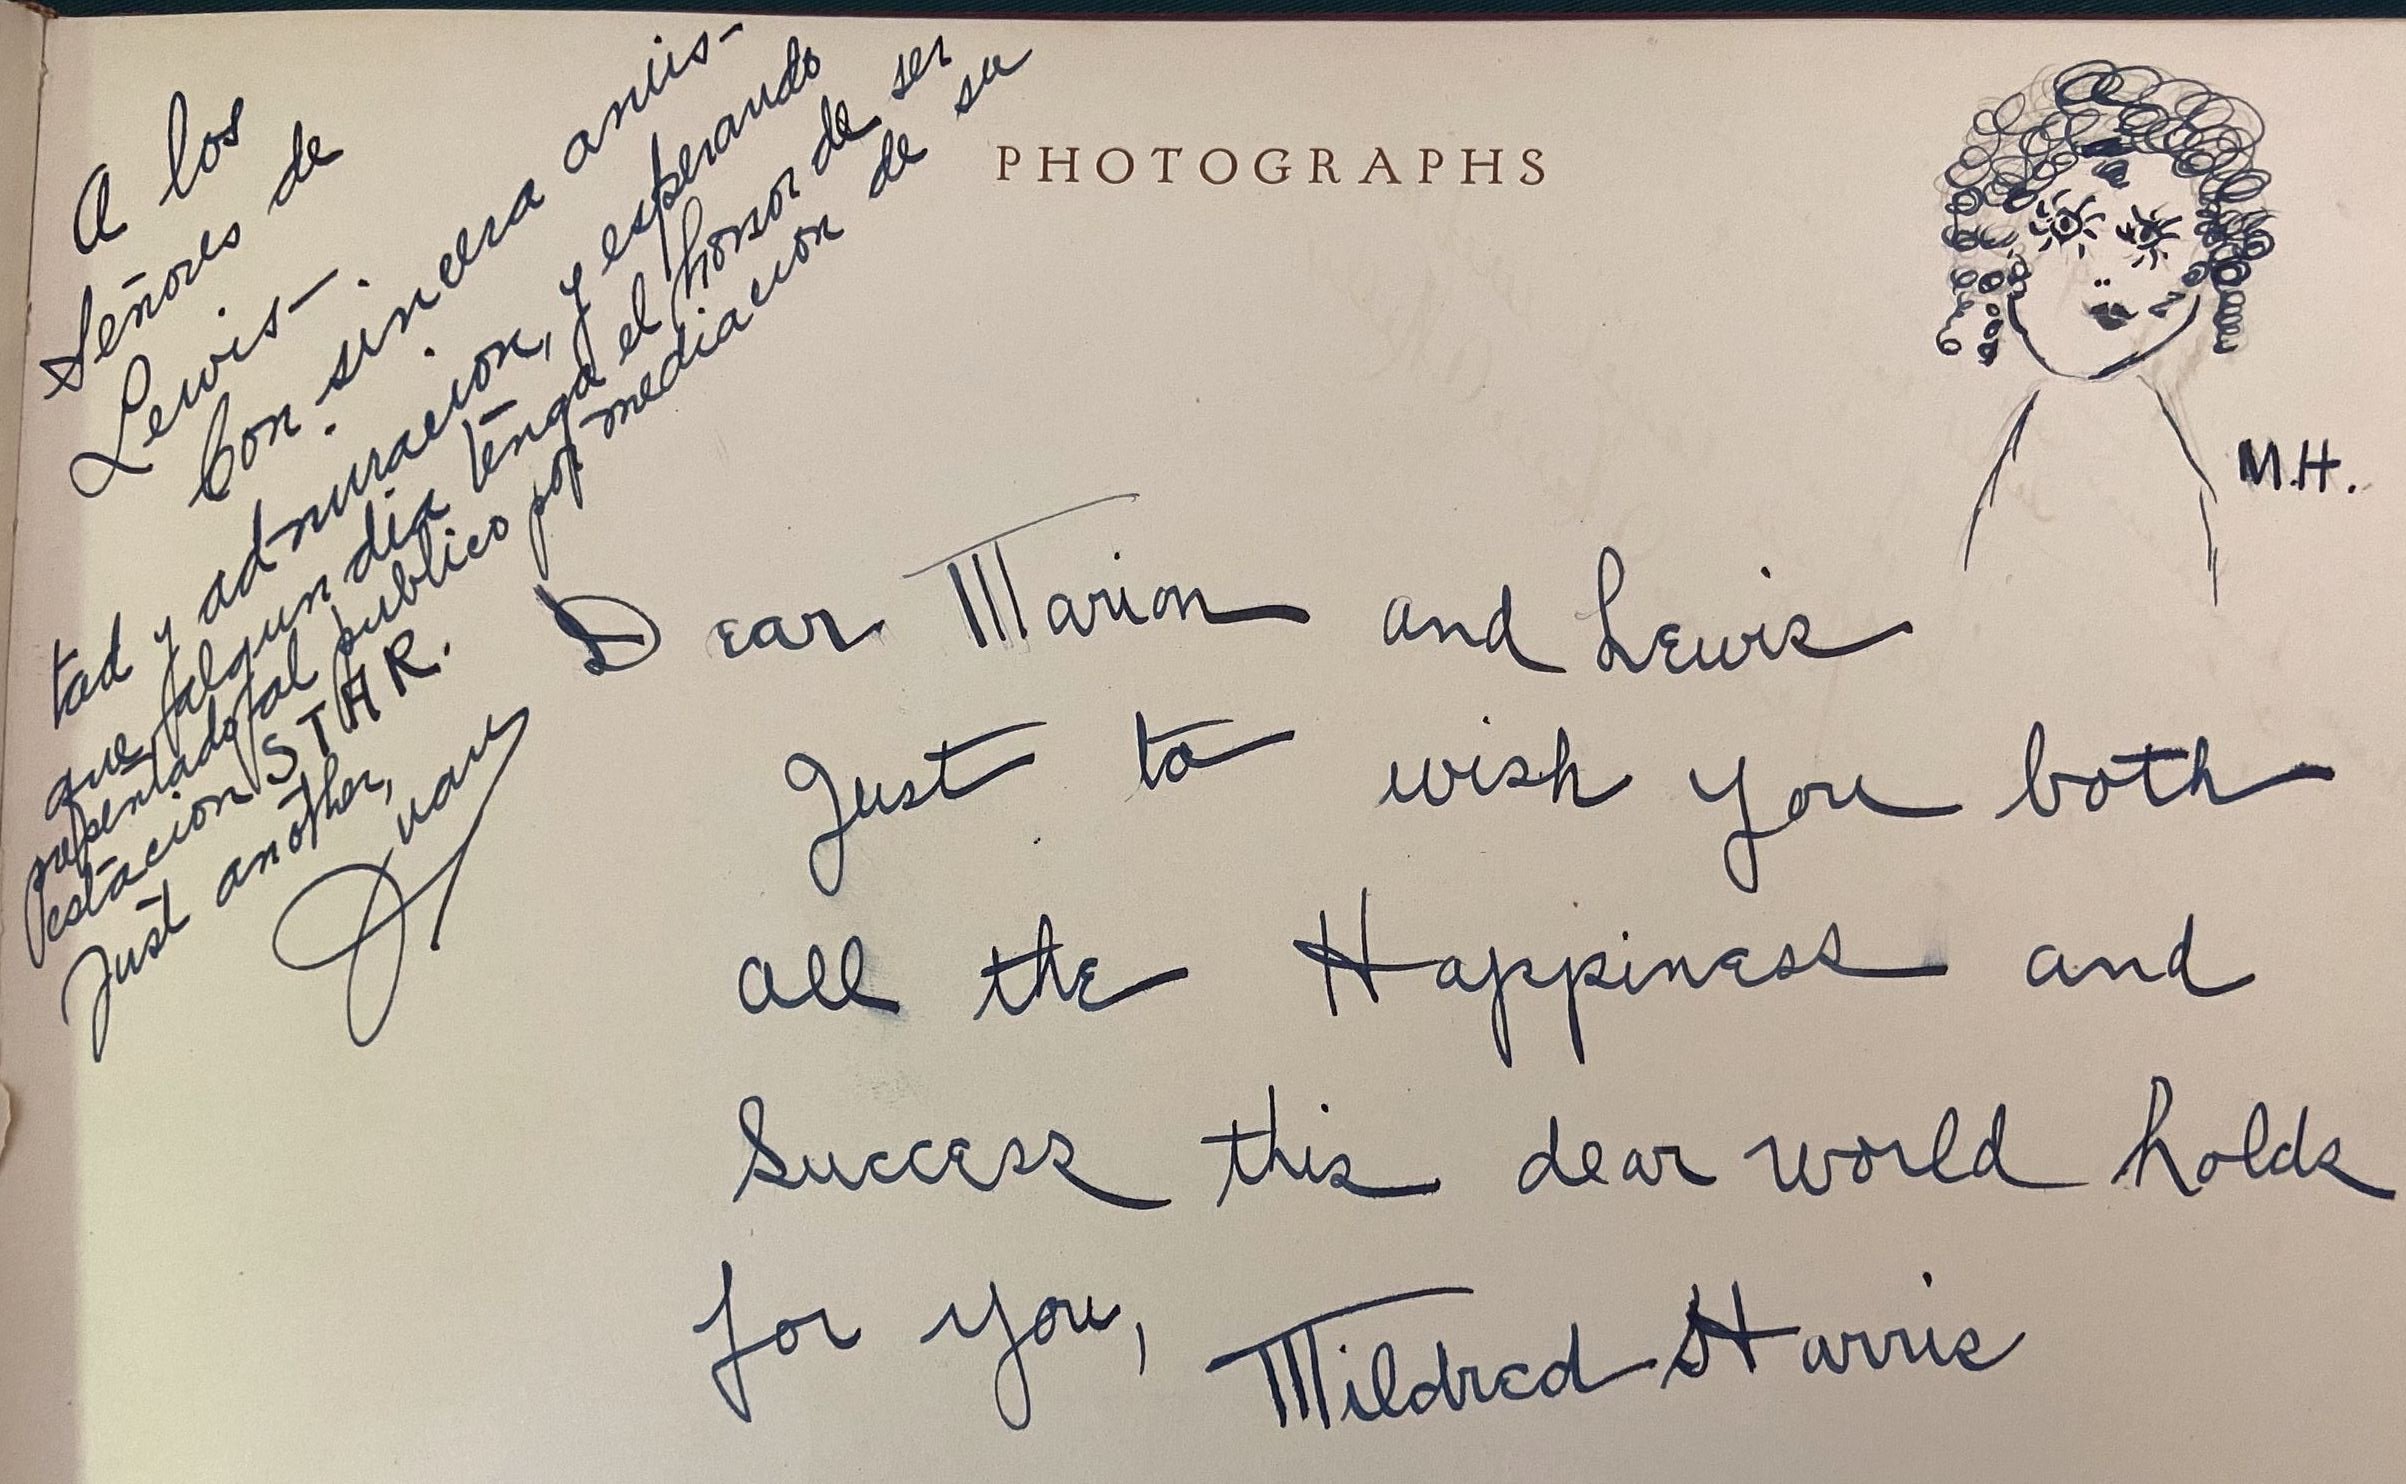 A los
Señores de
Lewis-.
Con sincera amis-
tad y admiracion, y esperando
que, algun dia tenga el honor de ser
presentado al publico por mediacion de su
estacion STAR.
Just another,
Juan
PHOTOGRAPHS
M.H.
Dear Marion and Lewis
Just to wish you both
all the Happiness and
Success this dear world holds
for you,
Mildred Harris